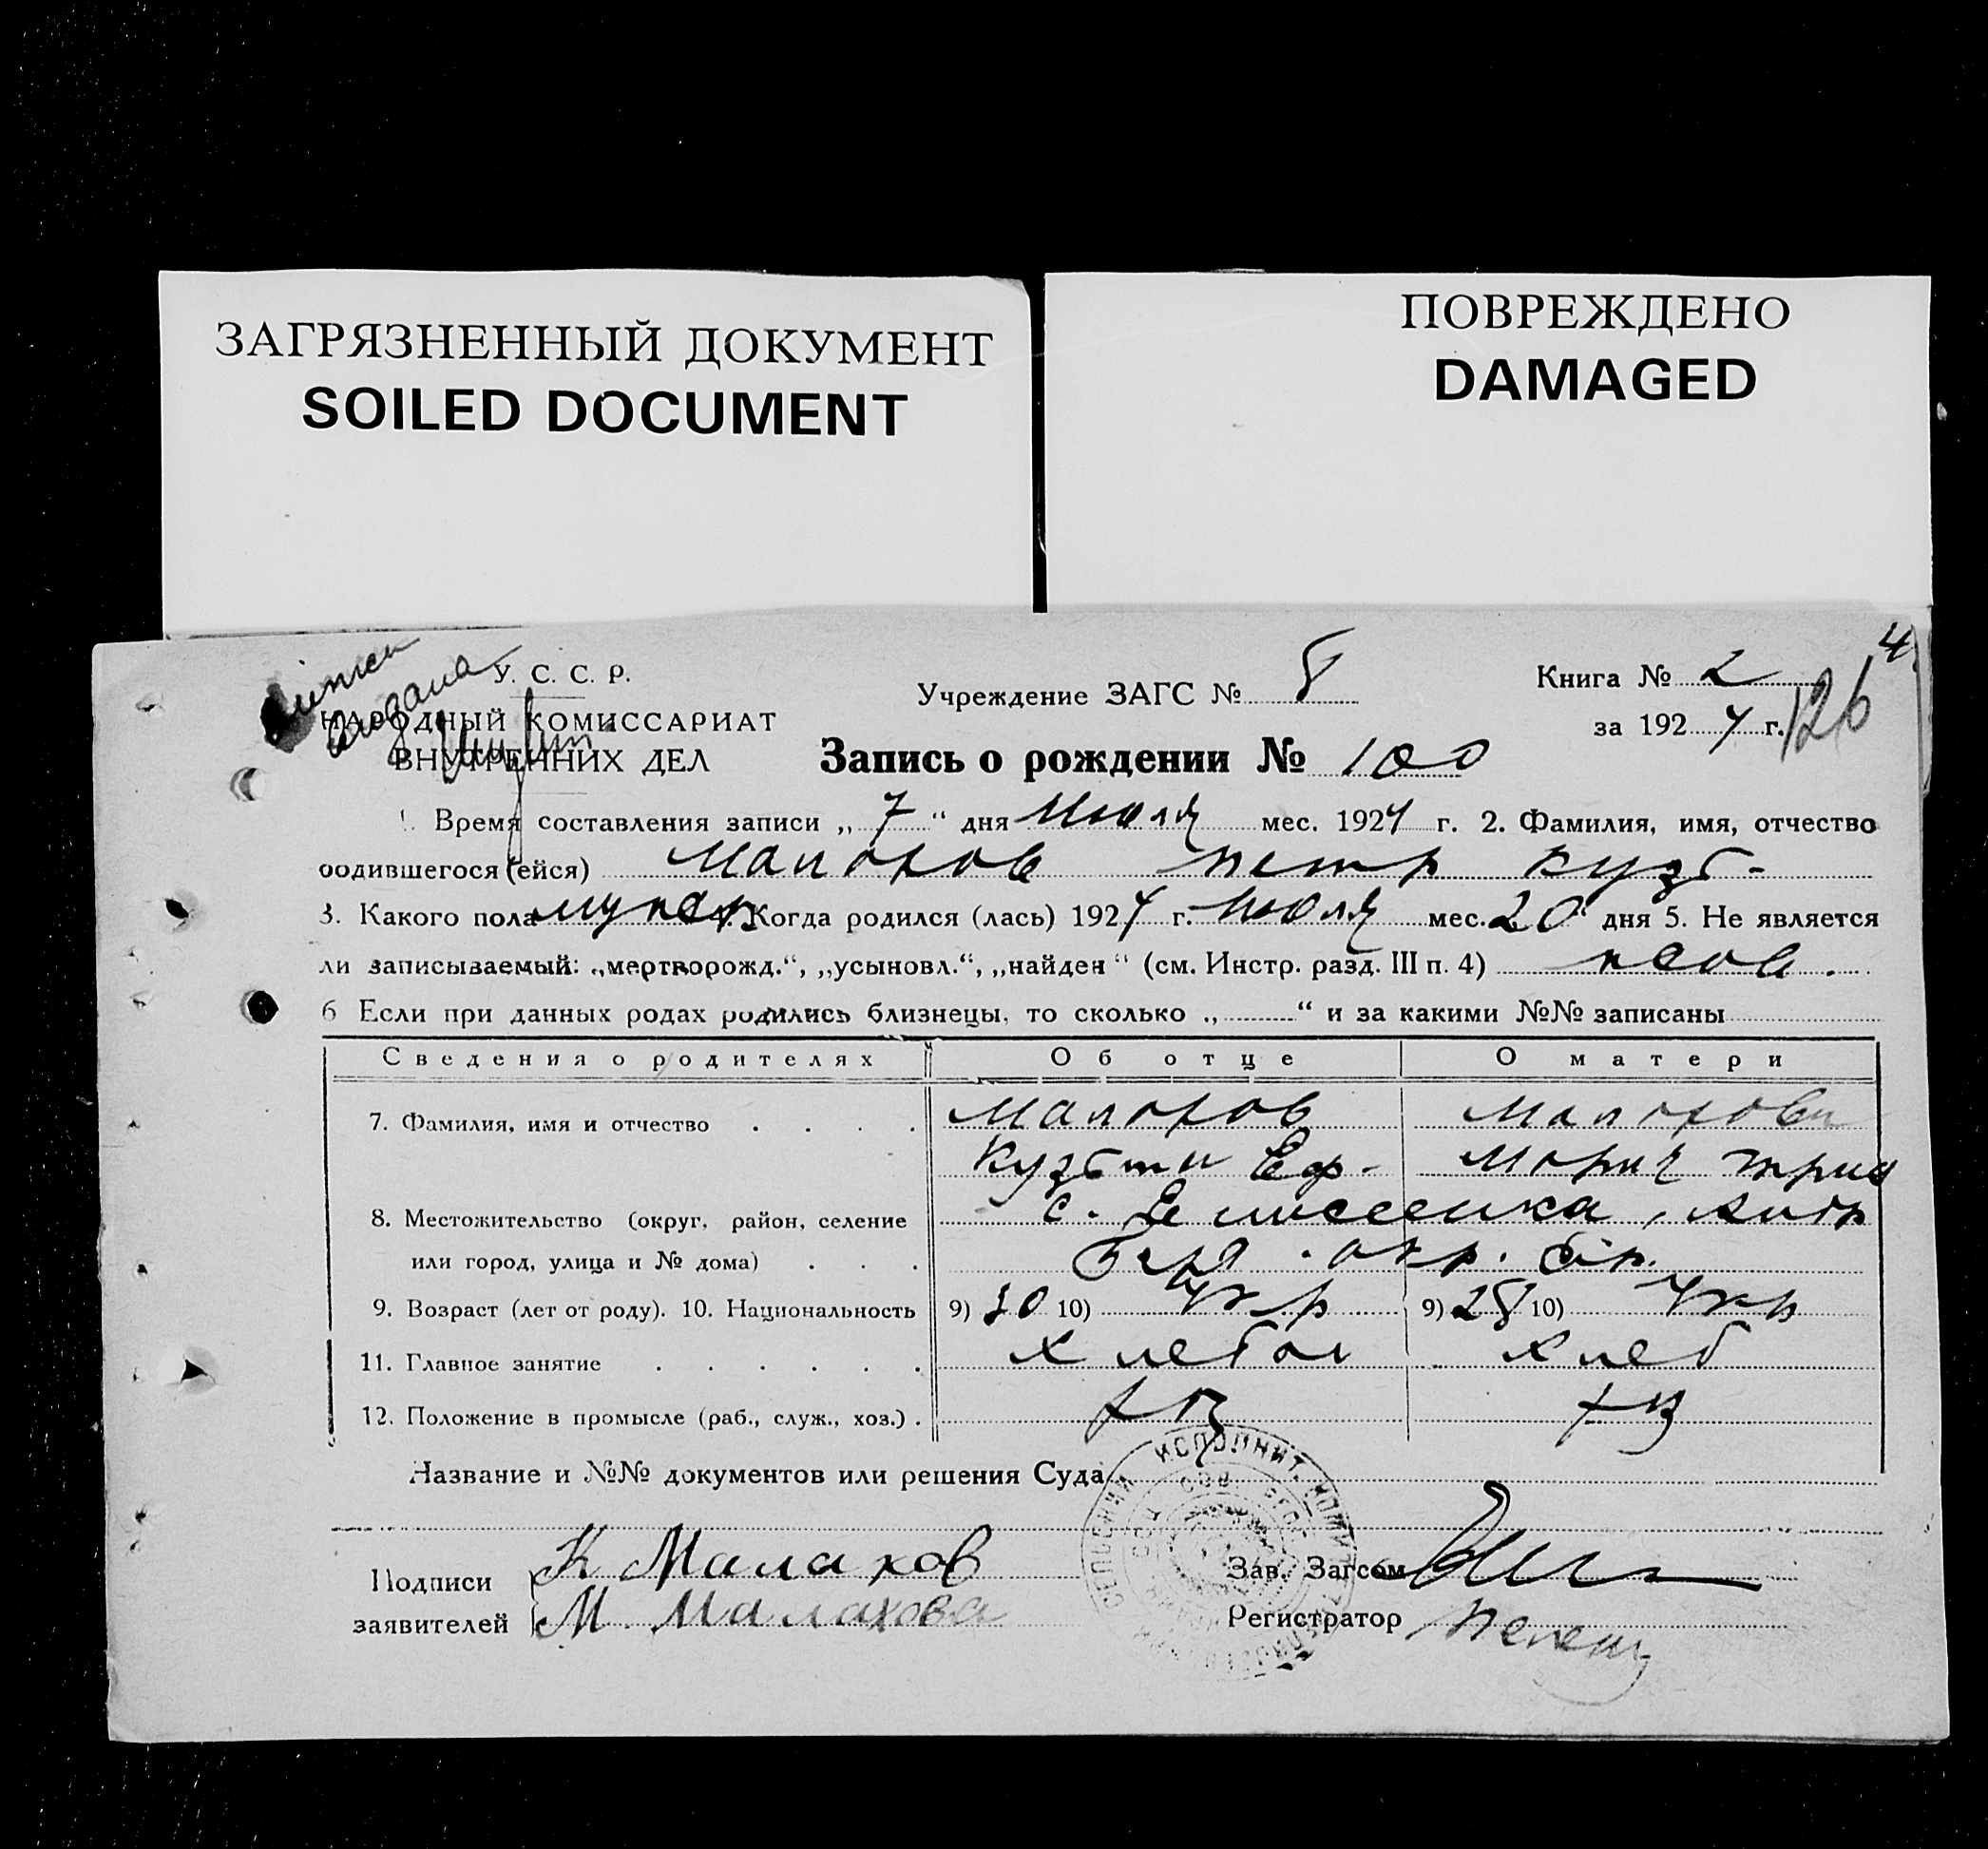 ЗАГРЯЗНЕННЫЙ ДОКУМЕНТ
SOILED DOCUMENT
ПОВРЕЖДЕНО
DAMAGED
У. С. С. Р.
НАРОДНЫЙ КОМИССАРИАТ
ВНУТРЕННИХ ДЕЛ
Учреждение ЗАГС № 8
Книга № 2
за 1924 г.
126
4
Запись о рождении № 100
1. Время составления записи „ 7 “ дня Июля мес. 1924 г. 2. Фамилия, имя, отчество
родившегося (ейся) Малохов Петр Кузь-
3. Какого пола 4. Когда родился (лась) 1924 г. Июля мес. 20 дня 5. Не является
ли записываемый: „мертворожд.“, „усыновл.“, „найден“ (см. Инстр. разд. III п. 4)
6 Если при данных родах родились близнецы, то сколько „ “ и за какими №№ записаны
Сведения о родителях Об отце О матери
7. Фамилия, имя и отчество Малохов Малохова
Кузьма Еф- Мория
8. Местожительство (округ, район, селение с.
или город, улица и № дома) окр.
9. Возраст (лет от роду). 10. Национальность 9) 30 10) Укр 9) 28 10) Укр
11. Главное занятие Хлебоп Хлеб
12. Положение в промысле (раб., служ., хоз.) хоз хоз
Название и №№ документов или решения Суда
Подписи К Малахов
заявителей М. Малахова
Зав. Загсом
Регистратор